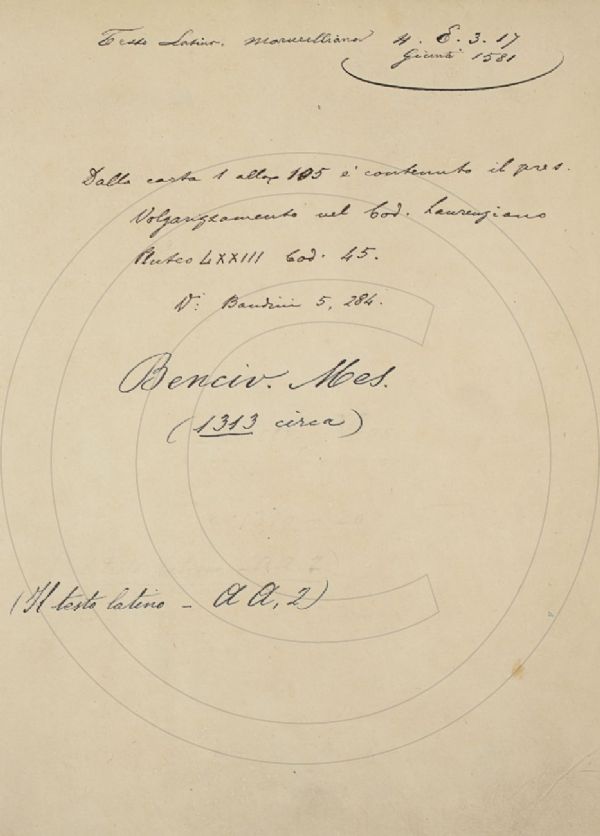 Testo Latino. Marucelliana 4. E. 3. 17
Giunti 1581
Dalla carta 1 alla 105 è contenuto il pres.
Volgarizzamento nel Cod. Laurenziano
Pluteo LXXIII Cod. 45.
V: Bandini 5, 284.
Benciv. Mes.
(1313 circa)
(Il testo latino - AA, 2)